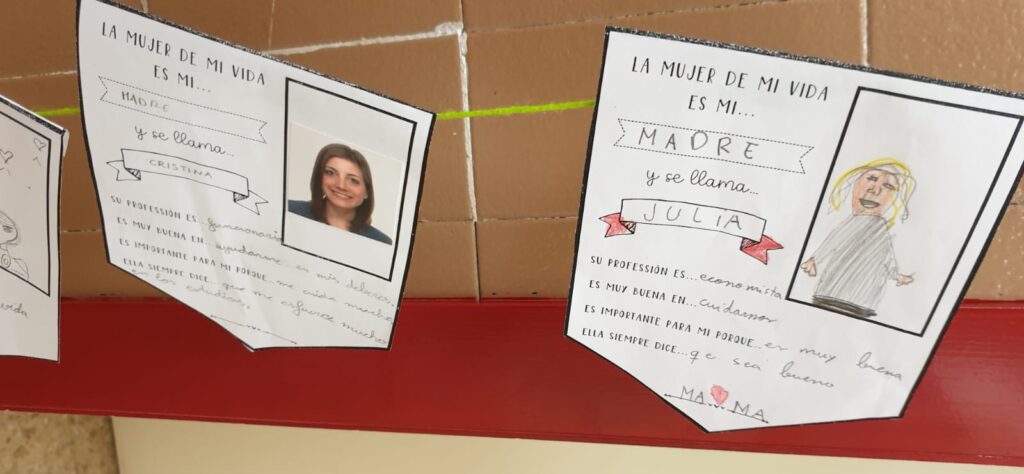 vida
LA MUJER DE MI VIDA
ES MI...
MADRE
y se llama...
CRISTINA
SU PROFESIÓN ES...funcionaria
ES MUY BUENA EN...ayudarme en mis deberes.
ES IMPORTANTE PARA MI PORQUE...me cuida mucho
ELLA SIEMPRE DICE.....que me esfuerce mucho
en los estudios.
LA MUJER DE MI VIDA
ES MI...
MADRE
y se llama...
JULIA
SU PROFESIÓN ES...economista
ES MUY BUENA EN...cuidarnos
ES IMPORTANTE PARA MI PORQUE...es muy buena
ELLA SIEMPRE DICE...qe sea bueno
MA MA